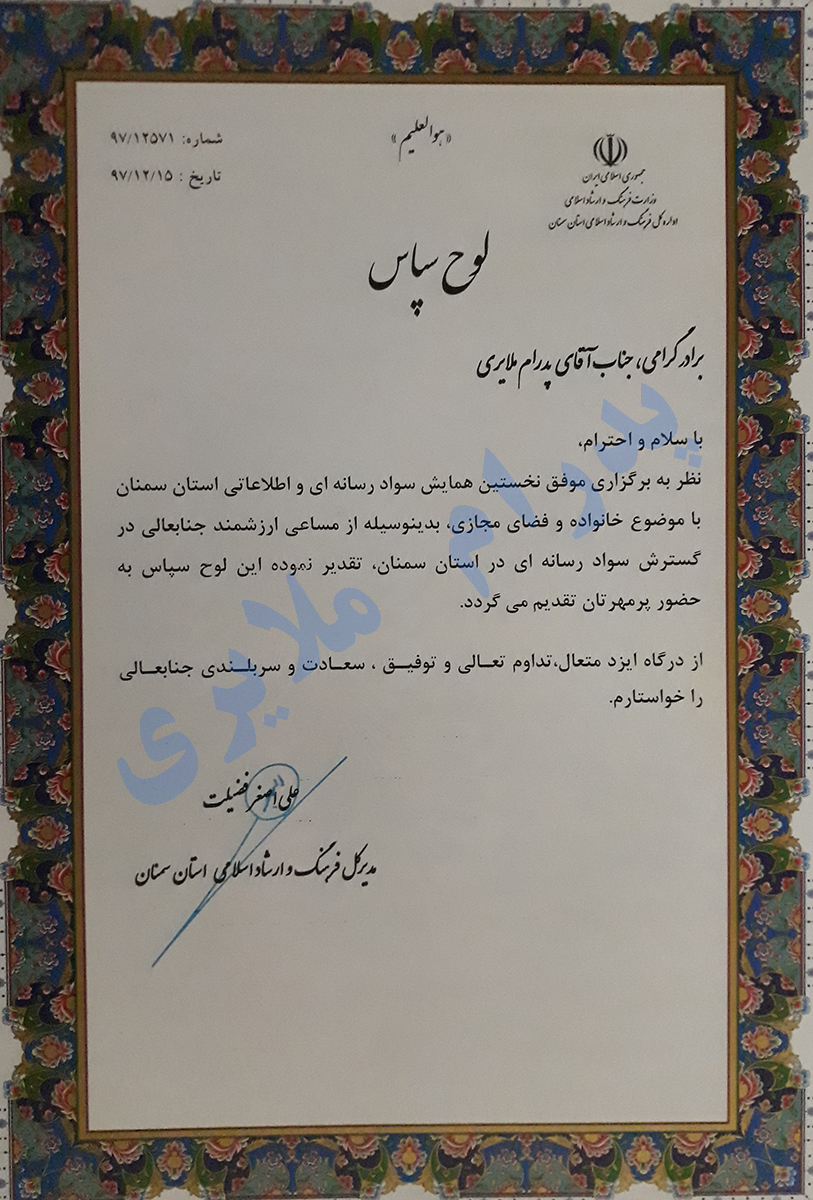 «هوالعلیم»
شماره: ۹۷/۱۲۵۷۱
تاریخ : ۹۷/۱۲/۱۵
جمهوری اسلامی ایران
وزارت فرهنگ و ارشاد اسلامی
اداره کل فرهنگ و ارشاد اسلامی استان سمنان
لوح سپاس
برادر گرامی، جناب آقای پدرام ملایری
با سلام و احترام،
نظر به برگزاری موفق نخستین همایش سواد رسانه ای و اطلاعاتی استان سمنان
با موضوع خانواده و فضای مجازی، بدینوسیله از مساعی ارزشمند جنابعالی در
گسترش سواد رسانه ای در استان سمنان، تقدیر نموده این لوح سپاس به
حضور پرمهرتان تقدیم می گردد.
از درگاه ایزد متعال،تداوم تعـالی و توفیـق ، سعـادت و سربلـندی جنابعـالی
را خواستارم.
علی اصغر فضیلت
مدیرکل فرهنگ و ارشاد اسلامی استان سمنان
پدرام ملایری